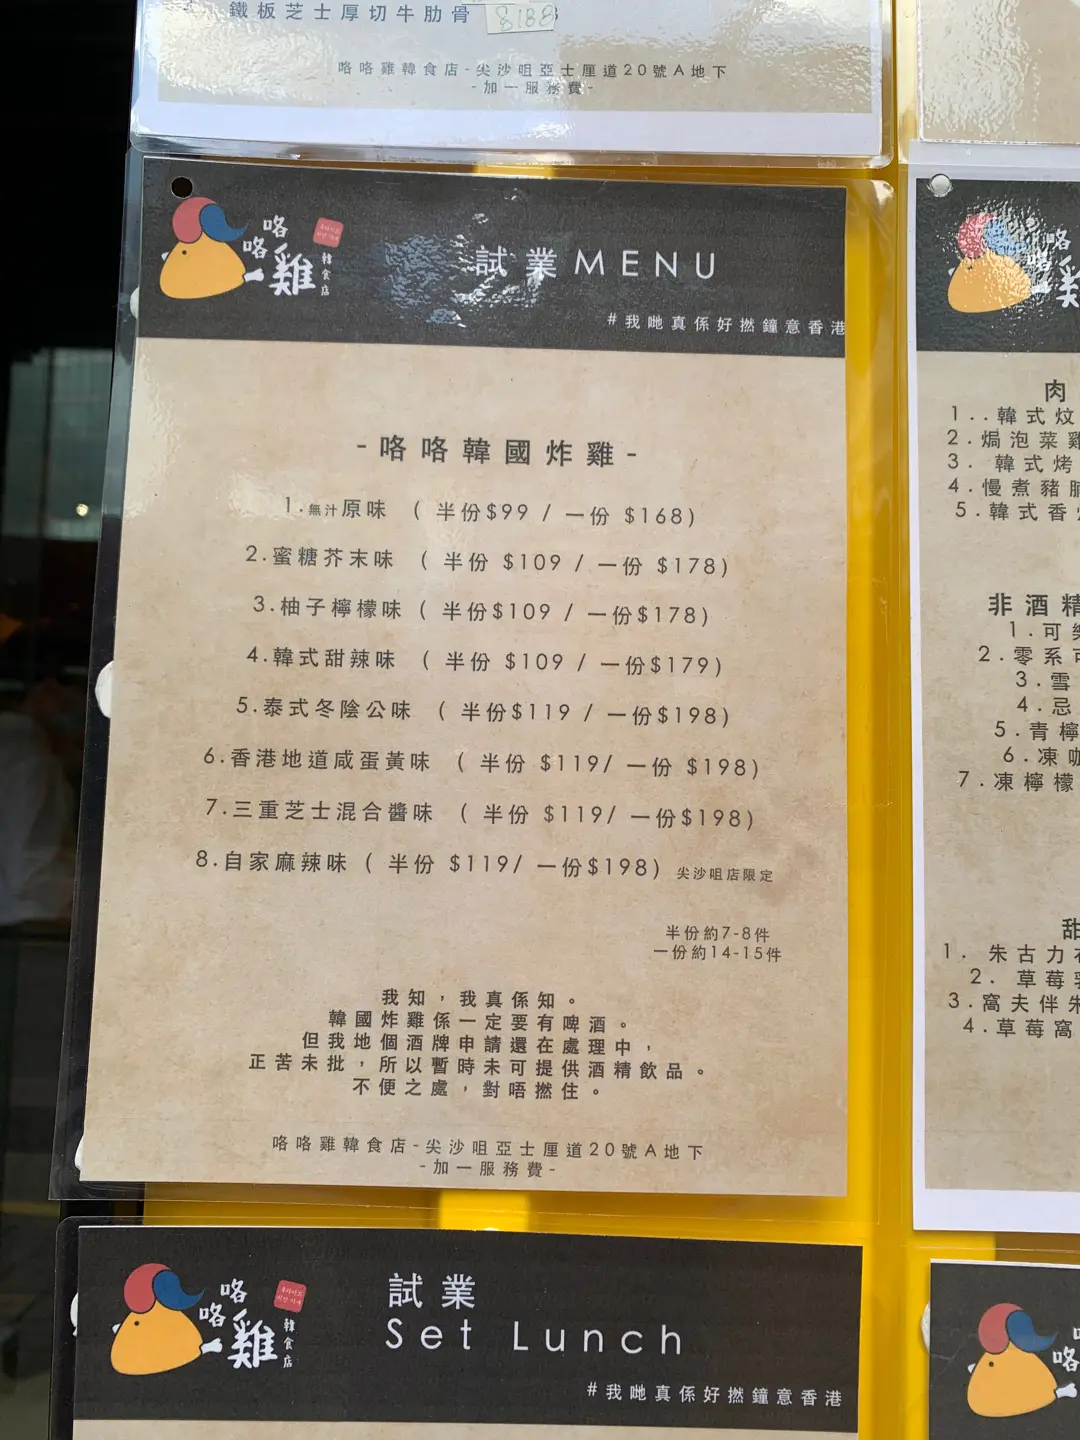 鐵板芝士厚切牛肋骨
$188
咯咯雞韓食店-尖沙咀亞士厘道20號A地下
-加一服務費-
咯咯雞
韓食店
試業MENU
#我哋真係好撚鐘意香港
-咯咯韓國炸雞-
1.無汁原味 ( 半份$99 / 一份 $168)
2.蜜糖芥末味 ( 半份 $109 / 一份 $178)
3.柚子檸檬味 ( 半份$109 / 一份$178)
4.韓式甜辣味 ( 半份 $109 / 一份$179)
5.泰式冬陰公味 ( 半份$119 / 一份$198)
6.香港地道咸蛋黃味 ( 半份 $119/ 一份 $198)
7.三重芝士混合醬味 ( 半份 $119/ 一份$198)
8.自家麻辣味 ( 半份 $119/ 一份$198) 尖沙咀店限定
半份約7-8件
一份約14-15件
我知，我真係知。
韓國炸雞係一定要有啤酒。
但我地個酒牌申請還在處理中，
正苦未批，所以暫時未可提供酒精飲品。
不便之處，對唔撚住。
咯咯雞韓食店-尖沙咀亞士厘道20號A地下
-加一服務費-
咯咯雞
韓食店
試業
Set Lunch
#我哋真係好撚鐘意香港
咯咯
肉
1..韓式炆
2.焗泡菜雞
3. 韓式烤
4.慢煮豬腩
5.韓式香
非酒精
1.可樂
2.零系可
3.雪
4.忌
5.青檸
6.凍咖
7.凍檸檬
甜
1. 朱古力
2. 草莓
3.窩夫伴朱
4.草莓窩
咯